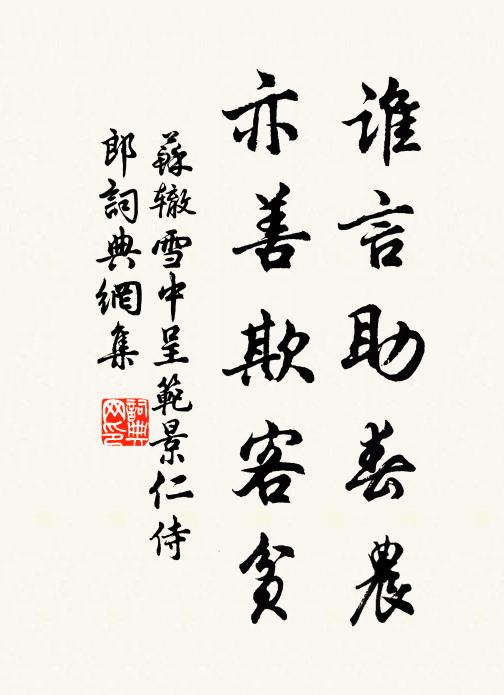 誰言助春農
亦善欺客貧
蘇轍雪中呈範景仁侍
郎詞典網集
詞典
网印